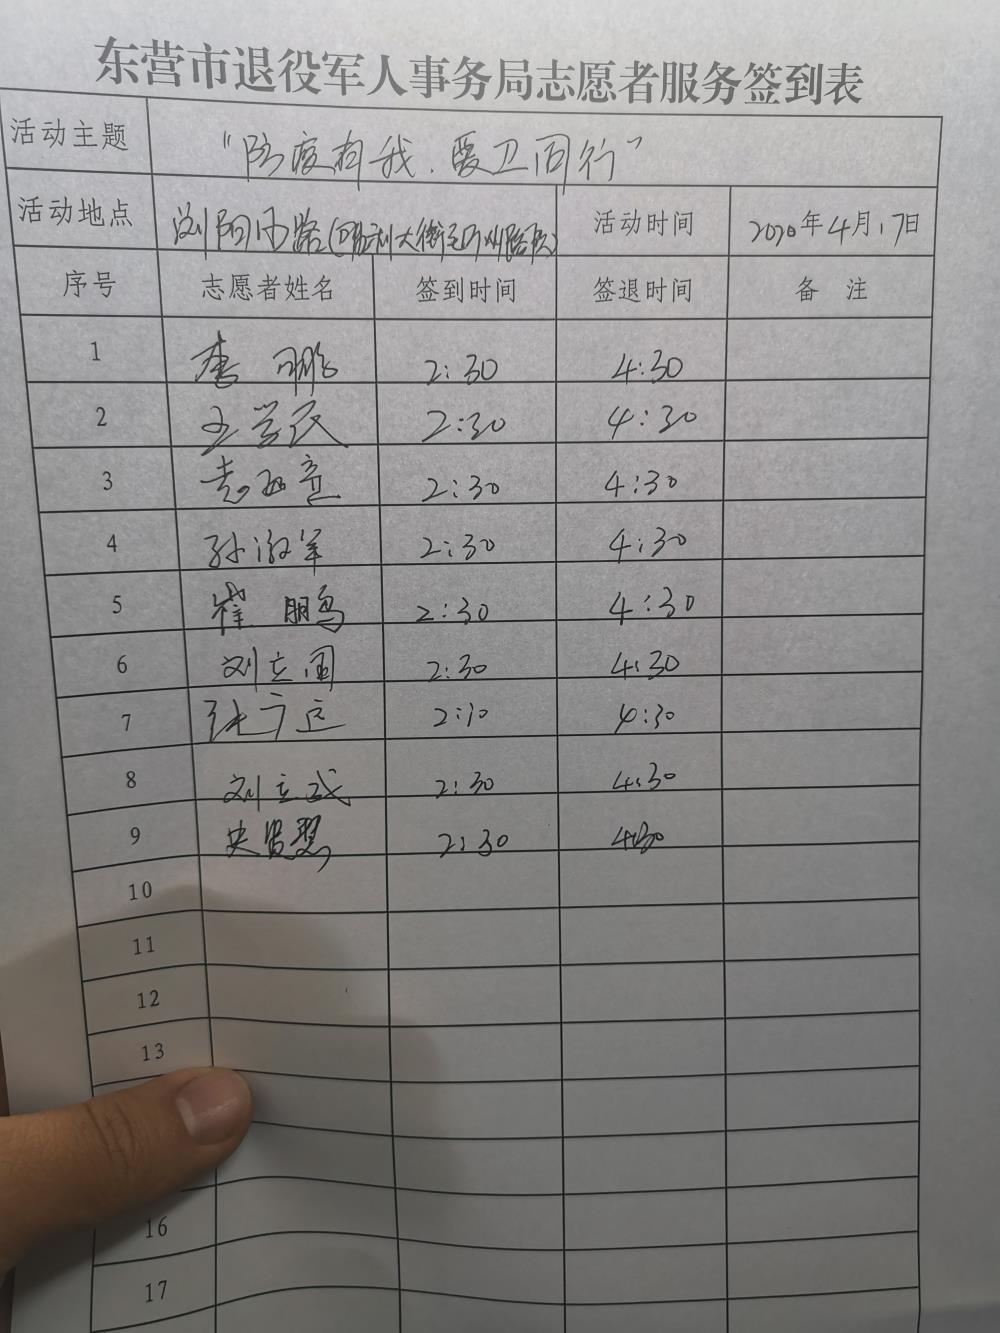 东营市退役军人事务局志愿者服务签到表
活动主题 “防疫有我、爱卫同行”
活动地点 活动时间 2020年4月17日
序号 志愿者姓名 签到时间 签退时间 备 注
1 李 鹏 2:30 4:30
2 王学民 2:30 4:30
3 2:30 4:30
4 孙 军 2:30 4:30
5 崔 鹏 2:30 4:30
6 刘立国 2:30 4:30
7 张广远 2:30 4:30
8 刘立武 2:30 4:30
9 史 2:30 4:30
10
11
12
13
16
17